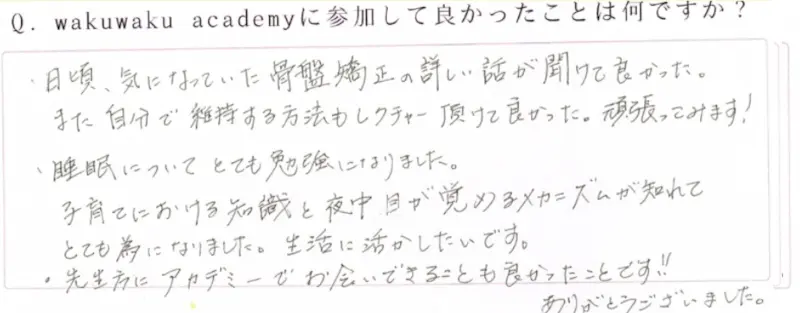 Q. wakuwaku academyに参加して良かったことは何ですか？
・日頃、気になっていた骨盤矯正の詳しい話が聞けて良かった。
また自分で維持する方法もレクチャー頂けて良かった。頑張ってみます！
・睡眠について とても勉強になりました。
子育てにおける知識と夜中目が覚めるメカニズムが知れて
とても為になりました。生活に活かしたいです。
・先生方に アカデミーで お会いできることも良かったことです!!
ありがとうございました。